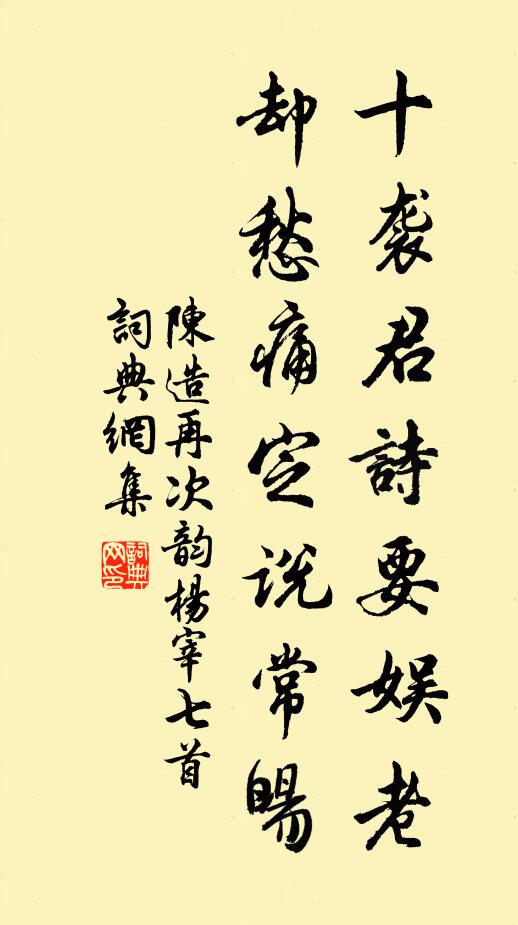 十袭君詩要娱老
却愁痛定説常暘
陳造再次韵楊宰七首
詞典網集
詞典網印